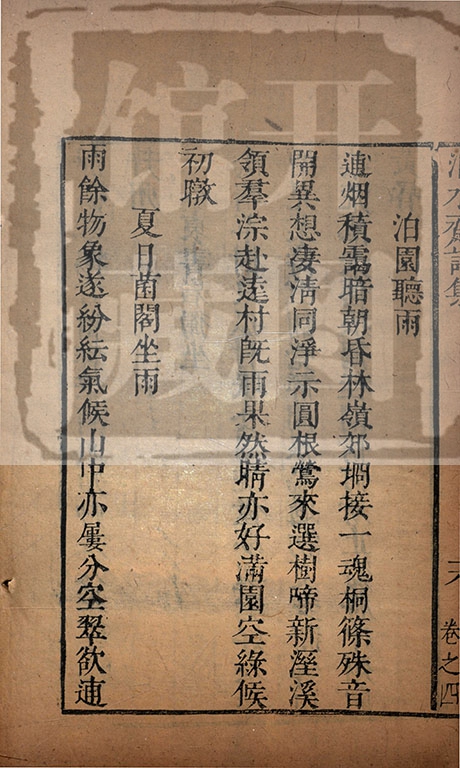 泊園聽雨
連烟積靄暗朝昏林嶺郊坰接一魂桐篠殊音
開異想淒淸同淨示圓根鶯來選樹啼新溼溪
領羣淙赴遠村旣雨果然晴亦好滿園空綠候
初暾
夏日菌閣坐雨
雨餘物象遂紛紜氣候山中亦屢分空翠欲連
卷之四